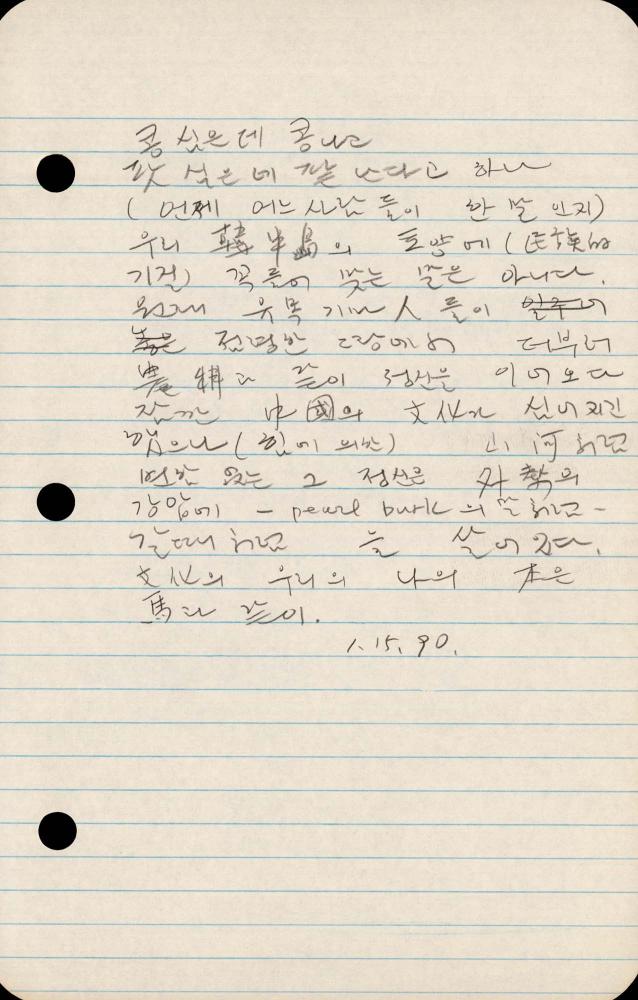 콩 심은데 콩나고
팟 심은데 팥 난다고 하나
( 언제 어느 사람들이 한 말 인지)
우리 韓半島의 토양에 ( 民族的
기질) 꼭 들어 맞는 말은 아니다.
원래 유목 기마人들이
전명한 땅에서 더부러
農耕과 같이 정신을 이어오다
잠깐 中國의 文化가 심어지긴
했으나 ( 힘에 의한) 山河처럼
변함 없는 그 정신은 外勢의
강압에 - pearl burk의 말처럼 -
갈대처럼 늘 살어 왔다.
文化의 우리의 나의 本은
馬과 같이.
1. 15. 90.